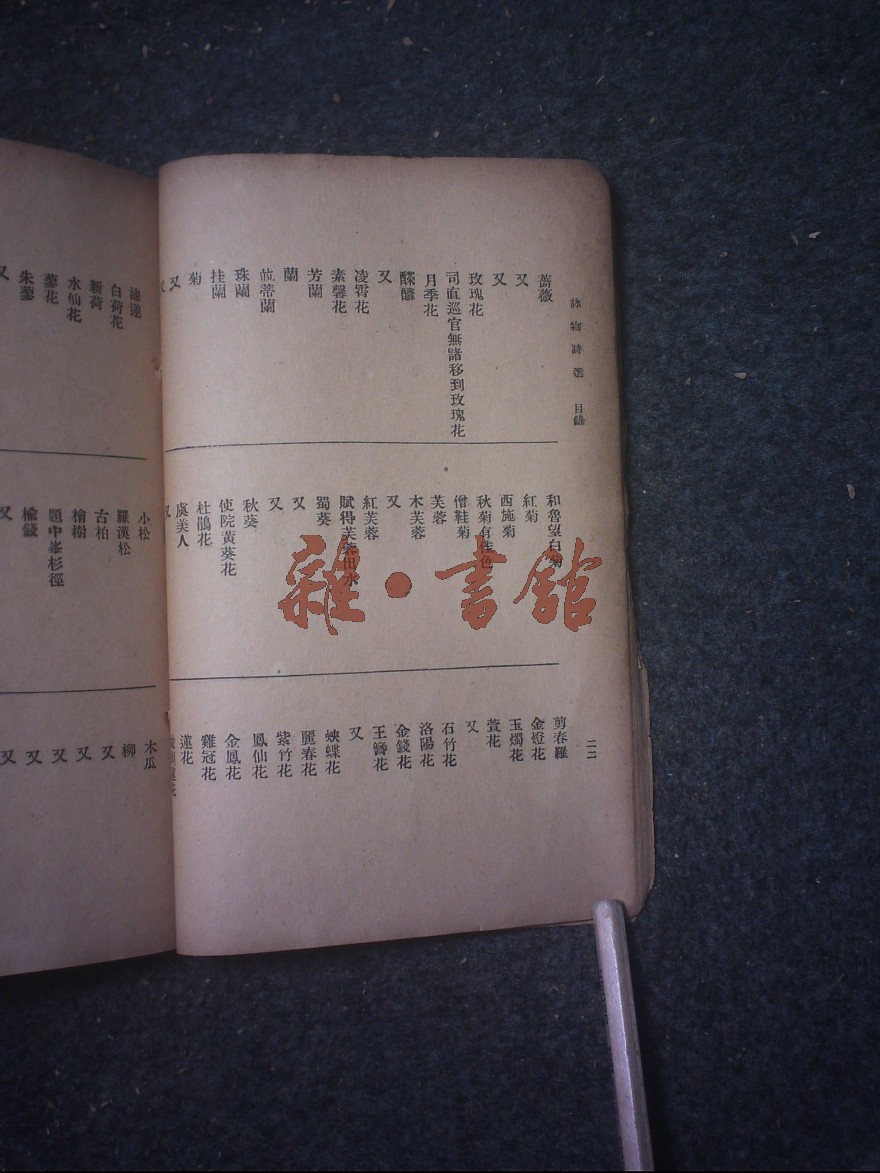 詠物詩選 目錄
二二
薔薇
又
又
玫瑰花
司直巡官無諸移到玫瑰花
月季花
酴醾
又
凌霄花
素馨花
芳蘭
蘭
並蒂蘭
珠蘭
挂蘭
菊
又
又
和魯望白菊
紅菊
西施菊
秋菊有佳色
僧鞋菊
芙蓉
木芙蓉
又
紅芙蓉
賦得芙蓉出水
蜀葵
又
又
秋葵
使院黃葵花
杜鵑花
虞美人
又
剪春羅
金燈花
玉燭花
萱花
又
石竹花
洛陽花
金錢花
玉簪花
又
蛺蝶花
麗春花
紫竹花
鳳仙花
金鳳花
雞冠花
蓮花
池蓮
白荷花
新荷
水仙花
蓼花
朱蓼
又
小松
羅漢松
古柏
檜樹
題中峯杉徑
榆錢
又
木瓜
柳
又
又
又
又
又
雜·書館